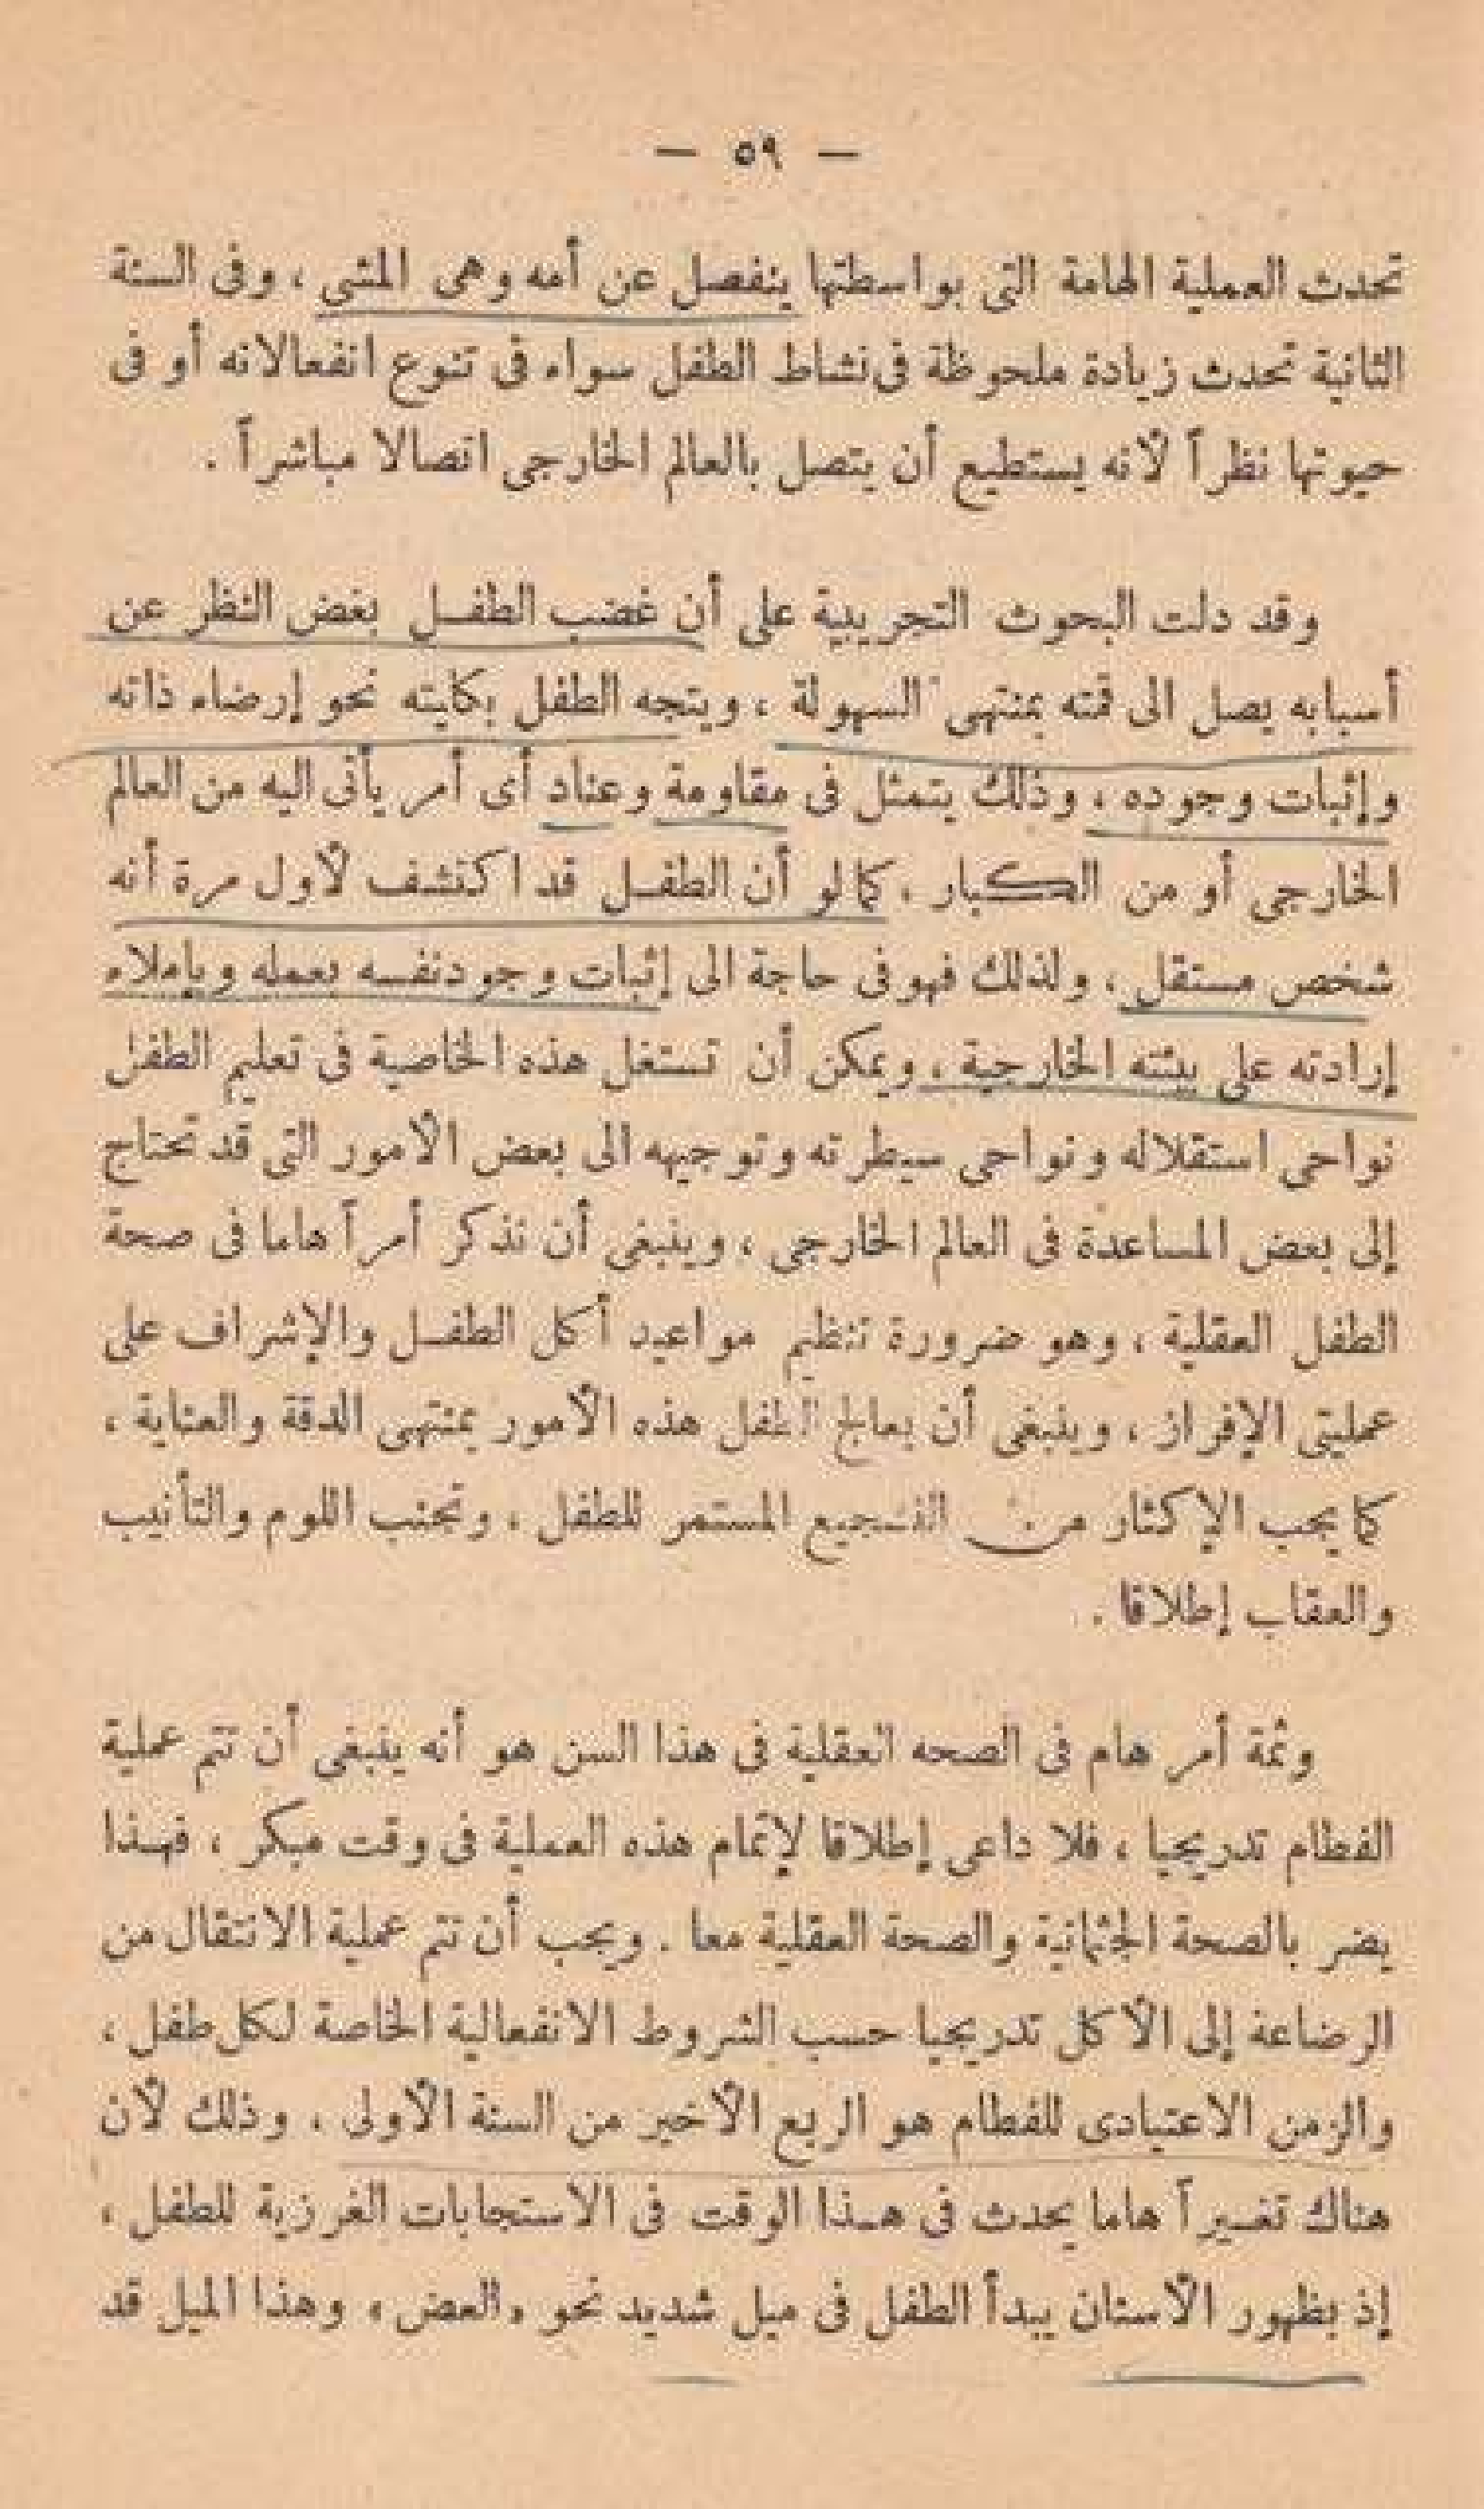 — ٥٩ —
تحدث العملية الهامة التى بواسطتها ينفصل عن أمه وهى المشى ، وفى السنة
الثانية تحدث زيادة ملحوظة فى نشاط الطفل سواء فى تنوع انفعالاته أو فى
حيوتها نظراً لأنه يستطيع أن يتصل بالعالم الخارجى اتصالا مباشراً .
وقد دلت البحوث التجريبية على أن غضب الطفل بغض النظر عن
أسبابه يصل الى قمته بمنتهى السهولة ، ويتجه الطفل بكليته نحو إرضاء ذاته
وإثبات وجوده ، وذلك يتمثل فى مقاومة وعناد أى أمر يأتى اليه من العالم
الخارجى أو من الكبار ، كما لو أن الطفل قد اكتشف لأول مرة أنه
شخص مستقل ، ولذلك فهو فى حاجة الى إثبات وجود نفسه بعمله وبإملاء
إرادته على بيئته الخارجية ، ويمكن أن تستغل هذه الخاصية فى تعليم الطفل
نواحى استقلاله ونواحى سيطرته وتوجيهه الى بعض الأمور التى قد تحتاج
إلى بعض المساعدة فى العالم الخارجى ، وينبغى أن نذكر أمراً هاما فى صحة
الطفل العقلية ، وهو ضرورة تنظيم مواعيد أكل الطفل والإشراف على
عمليتى الإفراز ، وينبغى أن يعالج الطفل هذه الأمور بمنتهى الدقة والعناية ،
كما يجب الإكثار من التشجيع المستمر للطفل ، وتجنب اللوم والتأنيب
والعقاب إطلاقا .
وثمة أمر هام فى الصحه العقلية فى هذا السن هو أنه ينبغى أن تتم عملية
الفطام تدريجيا ، فلا داعى إطلاقا لإتمام هذه العملية فى وقت مبكر ، فهذا
يضر بالصحة الجثمانية والصحة العقلية معا . ويجب أن تتم عملية الانتقال من
الرضاعة إلى الأكل تدريجيا حسب الشروط الانفعالية الخاصة لكل طفل ،
والزمن الاعتيادى للفطام هو الربع الأخير من السنة الأولى . وذلك لأن
هناك تغييراً هاما يحدث فى هذا الوقت فى الاستجابات الغرزية للطفل ،
إذ بظهور الأسنان يبدأ الطفل فى ميل شديد نحو «العض» وهذا الميل قد